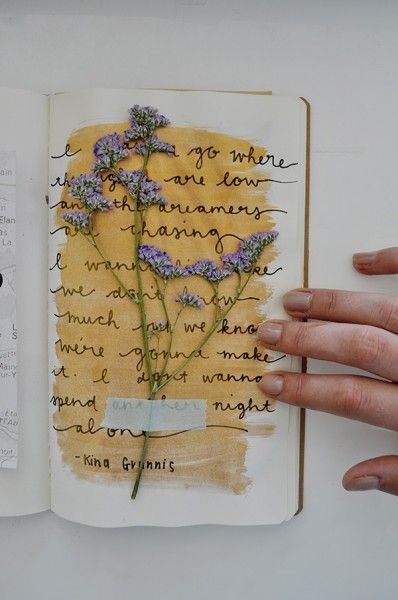 I go where
are low
and the dreamers
are chasing
I wanna
we don't know
much but we know
we're gonna make
it. I don't wanna
spend another night
alone
- Kina Grannis